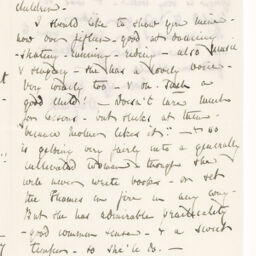 children -
I should like to show you mine -
now over fifteen - good at dancing
- skating - running - riding - also music
& singing - she has a lovely voice -
Very lovely too - & oh such a
good child! - doesn't care much
for lessons - but sticks at them -
because mother likes it" - & so
is getting very fairly into a generally
cultivated woman - though she
will never write books - or set
the Thames on fire in any way -
But she has admirable practicality
- good common sense - & a sweet
temper - so she'll do -